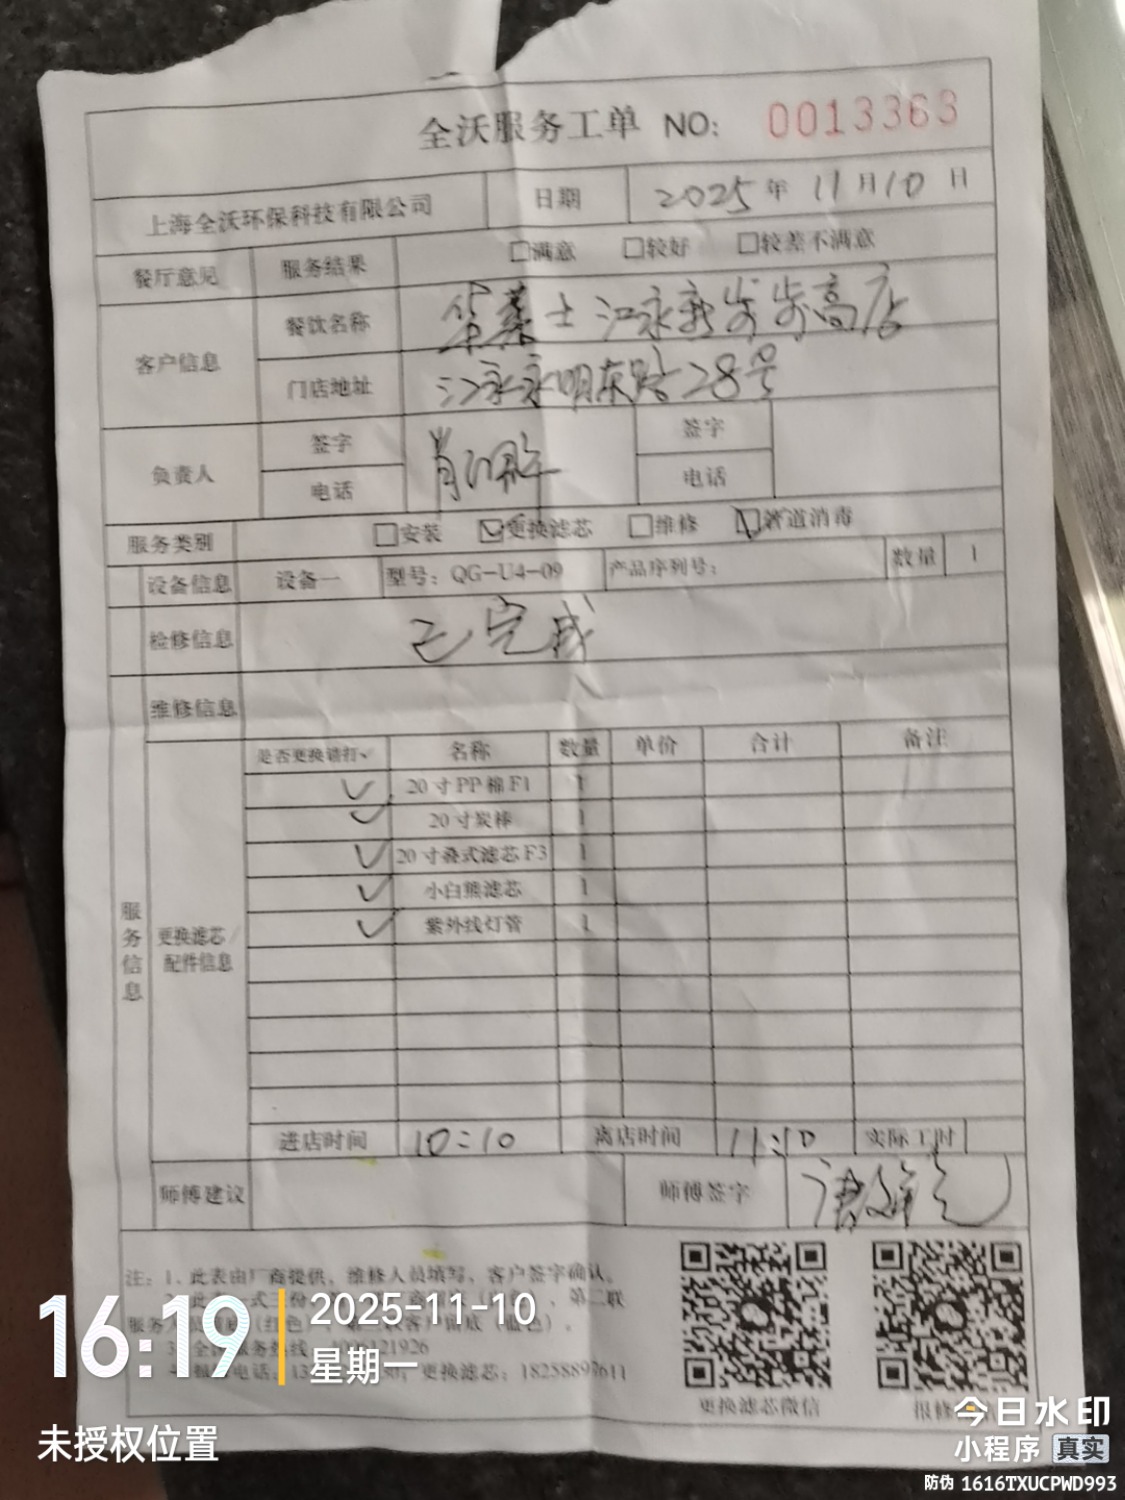 全沃服务工单 NO: 0013363
上海全沃环保科技有限公司 日期 2025年11月10日
餐厅意见 服务结果 □满意 □较好 □较差不满意
客户信息 餐饮名称 华莱士江永新步步高店
门店地址 江永永明东路28号
负责人 签字 签字
电话 电话
服务类别 □安装 ☑更换滤芯 □维修 ☑管道消毒
设备信息 设备一 型号: QG-U4-09 产品序列号: 数量 1
检修信息 已完成
维修信息
服务信息
更换滤芯/配件信息
是否更换请打✓ 名称 数量 单价 合计 备注
✓ 20寸PP棉F1 1
✓ 20寸炭棒 1
✓ 20寸叠式滤芯F3 1
✓ 小白熊滤芯 1
✓ 紫外线灯管 1
进店时间 10:10 离店时间 11:10 实际工时
师傅建议 师傅签字
注: 1、此表由厂商提供, 维修人员填写, 客户签字确认。
第二联
更换滤芯: 1825889
更换滤芯微信 报修
16:19 2025-11-10
星期一
未授权位置
今日水印
小程序 真实
防伪 1616TXUCPWD993